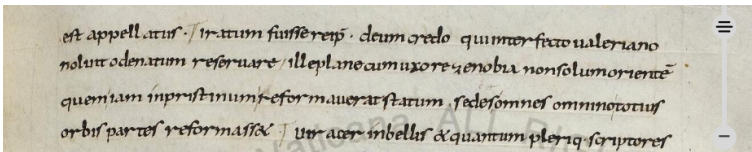 est appellatus · / iratum fuisse reip̄ · deum credo qui interfecto ualeriano
noluit odenatum reseruare / ille plane cum uxore zenobia non solum orientē
quem iam in pristinum reformauerat statum . sed & omnes omnino totius
orbis partes reformass& / uir acer in bellis & quantum pleriq· scriptores